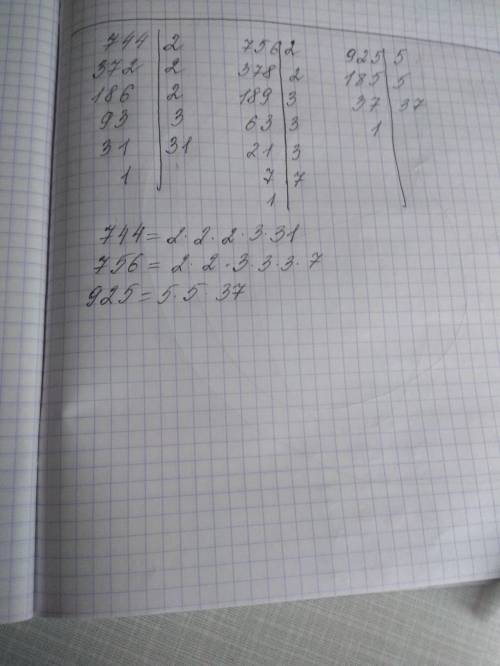 744 | 2
372 | 2
186 | 2
93 | 3
31 | 31
1
756 | 2
378 | 2
189 | 3
63 | 3
21 | 3
7 | 7
1
925 | 5
185 | 5
37 | 37
1
744 = 2 · 2 · 2 · 3 · 31
756 = 2 · 2 · 3 · 3 · 3 · 7
925 = 5 · 5 · 37